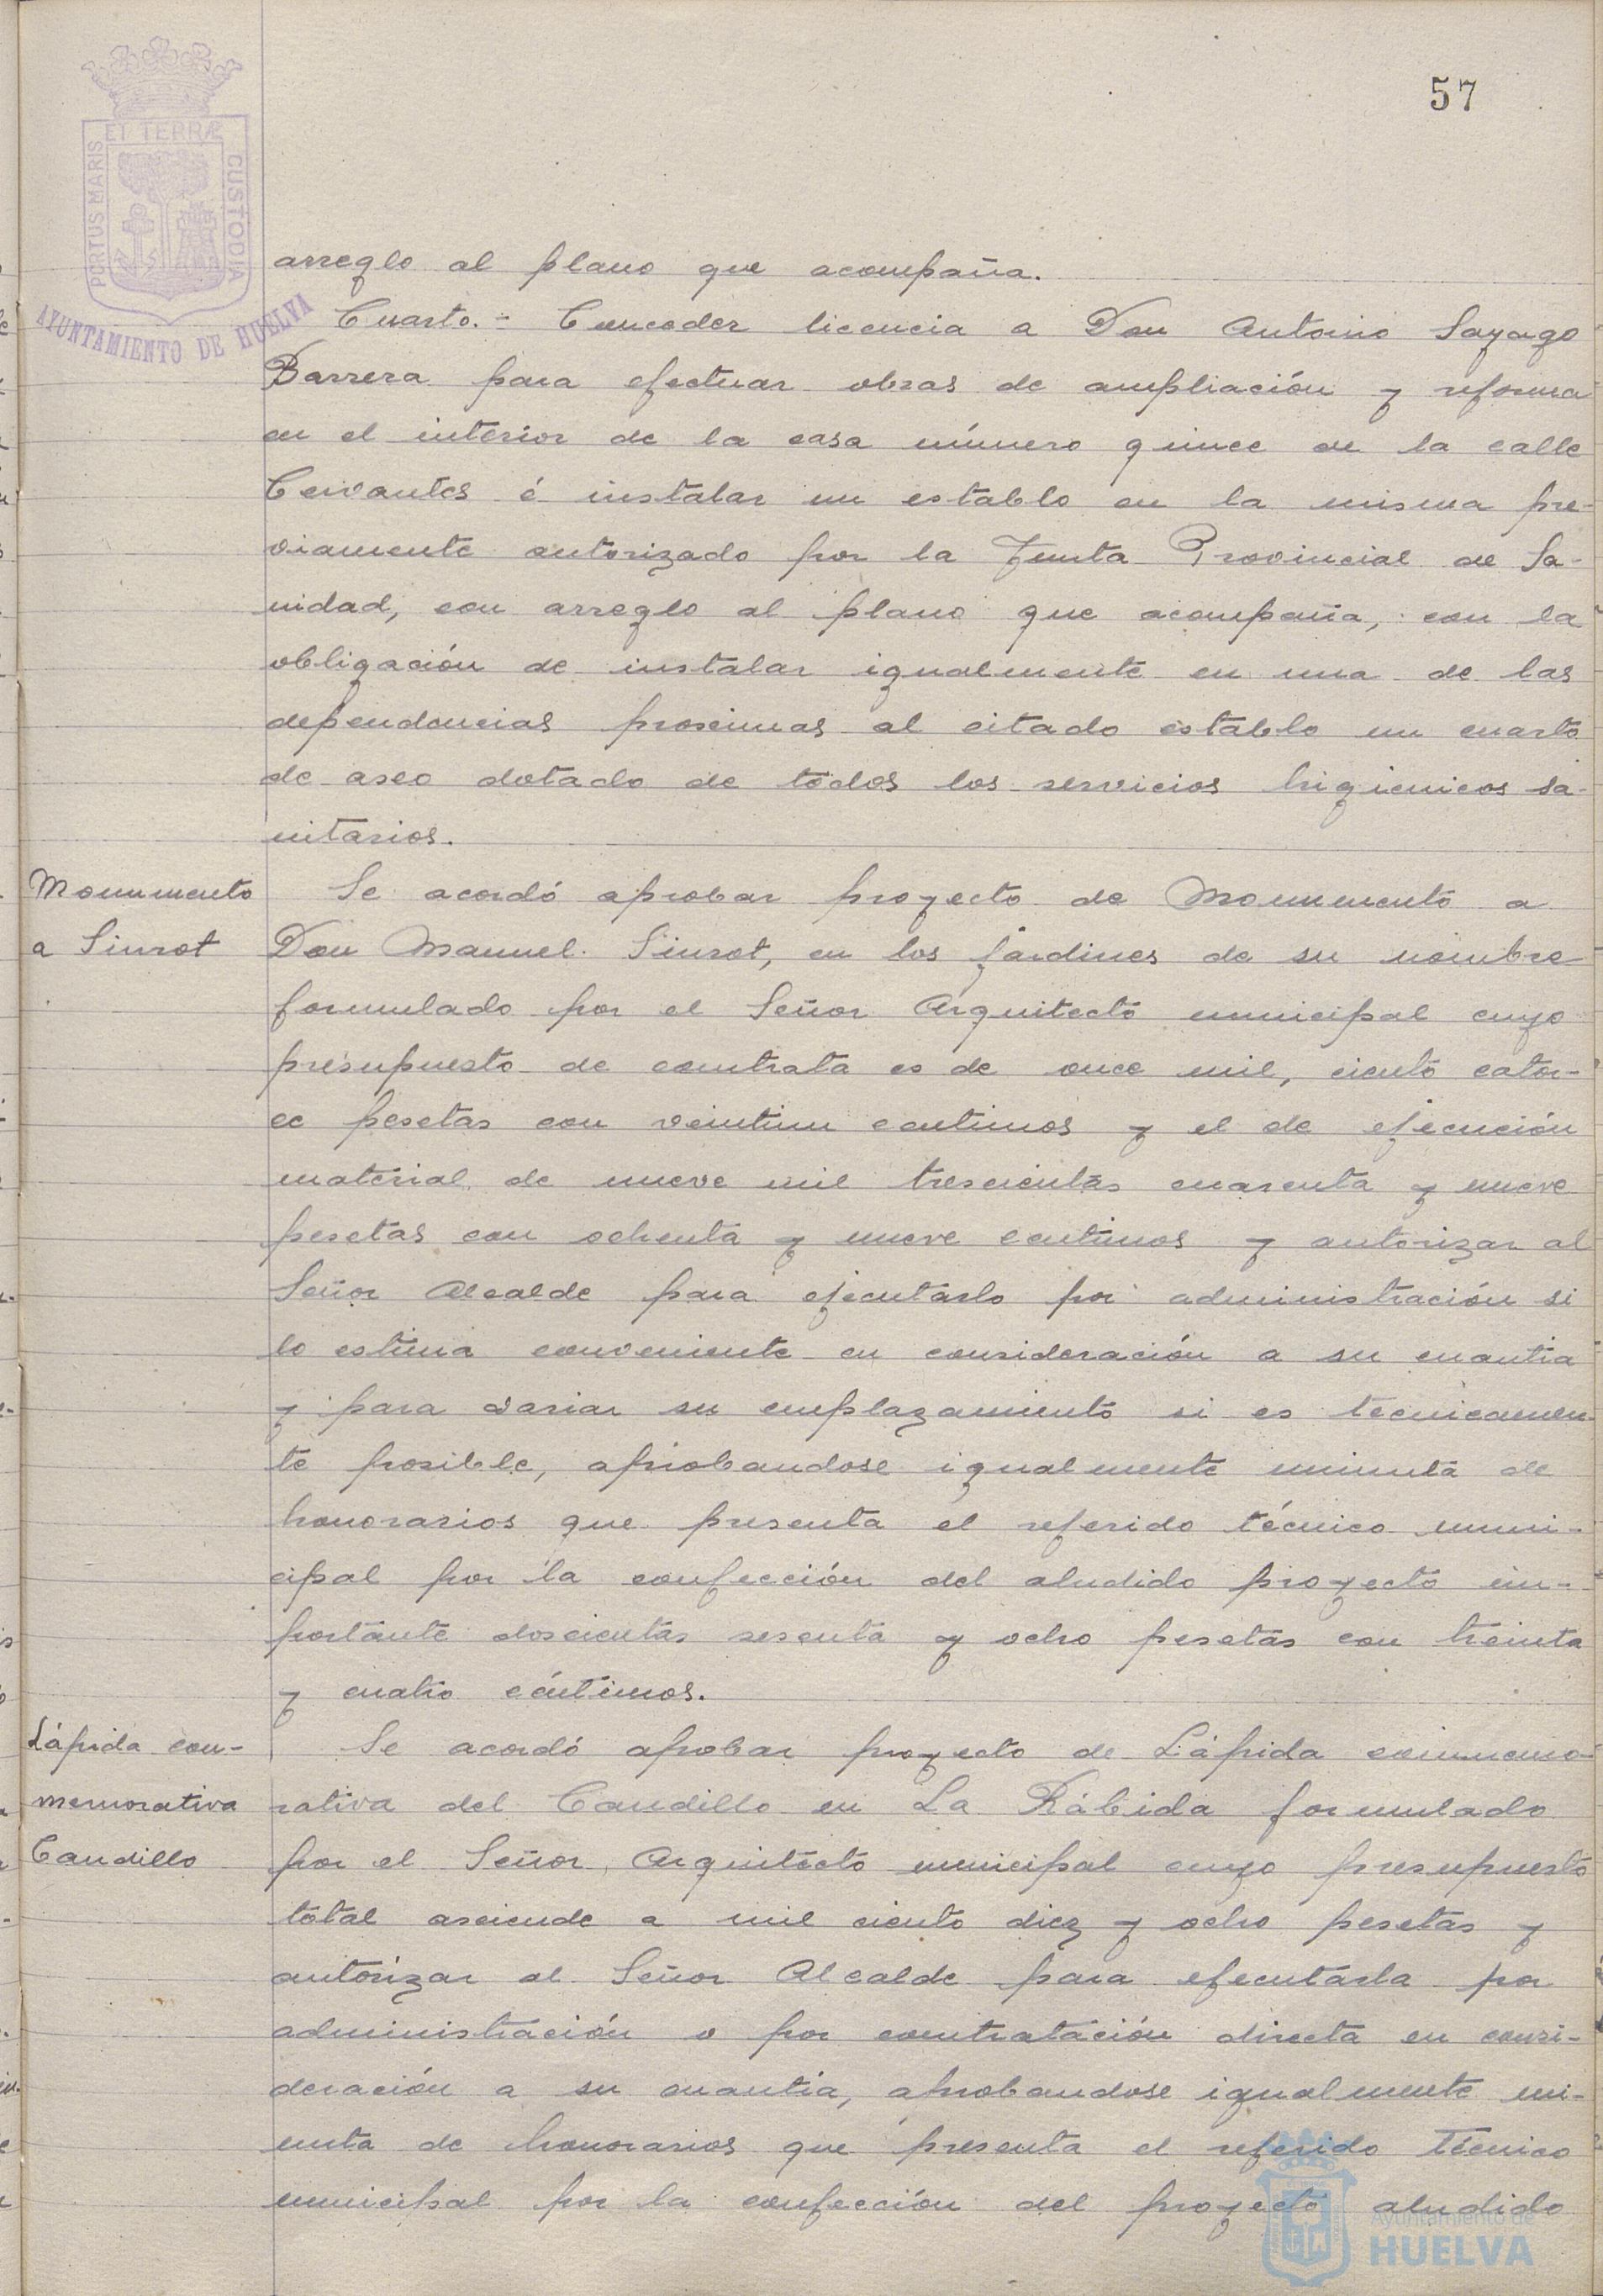 57
PORTUS MARIS ET TERRÆ CUSTODIA
AYUNTAMIENTO DE HUELVA
arreglo al plano que acompaña.
Cuarto.- Conceder licencia a Don Antonio Sayago
Barrera para efectuar obras de ampliación y reforma
en el interior de la casa número quince de la calle
Cervantes é instalar un establo en la misma pre-
viamente autorizado por la Junta Provincial de Sa-
nidad, con arreglo al plano que acompaña, con la
obligación de instalar igualmente en una de las
dependencias proximas al citado establo un cuarto
de aseo dotado de todos los servicios higienicos sa-
nitarios.
Monumento
a Siurot
Se acordó aprobar proyecto de Monumento a
Don Manuel Siurot, en los jardines de su nombre
formulado por el Señor Arquitecto municipal cuyo
presupuesto de contrata es de once mil, ciento cator-
ce pesetas con veintiun centimos y el de ejecución
material de nueve mil trescientas cuarenta y nueve
pesetas con ochenta y nueve centimos y autorizar al
Señor Alcalde para ejecutarlo por administración si
lo estima conveniente en consideración a su cuantia
y para variar su emplazamiento si es tecnicamen-
te posible, aprobandose igualmente minuta de
honorarios que presenta el referido técnico muni-
cipal por la confección del aludido proyecto im-
portante doscientas sesenta y ocho pesetas con treinta
y cuatro céntimos.
Lápida con-
memorativa
Caudillo
Se acordó aprobar proyecto de Lápida conmemo-
rativa del Caudillo en La Rábida formulado
por el Señor Arquitecto municipal cuyo presupuesto
total asciende a mil ciento diez y ocho pesetas y
autorizar al Señor Alcalde para efecutarla por
administración o por contratación directa en consi-
deración a su cuantia, aprobandose igualmente mi-
nuta de honorarios que presenta el referido Técnico
municipal por la confección del proyecto aludido
Ayuntamiento de
HUELVA